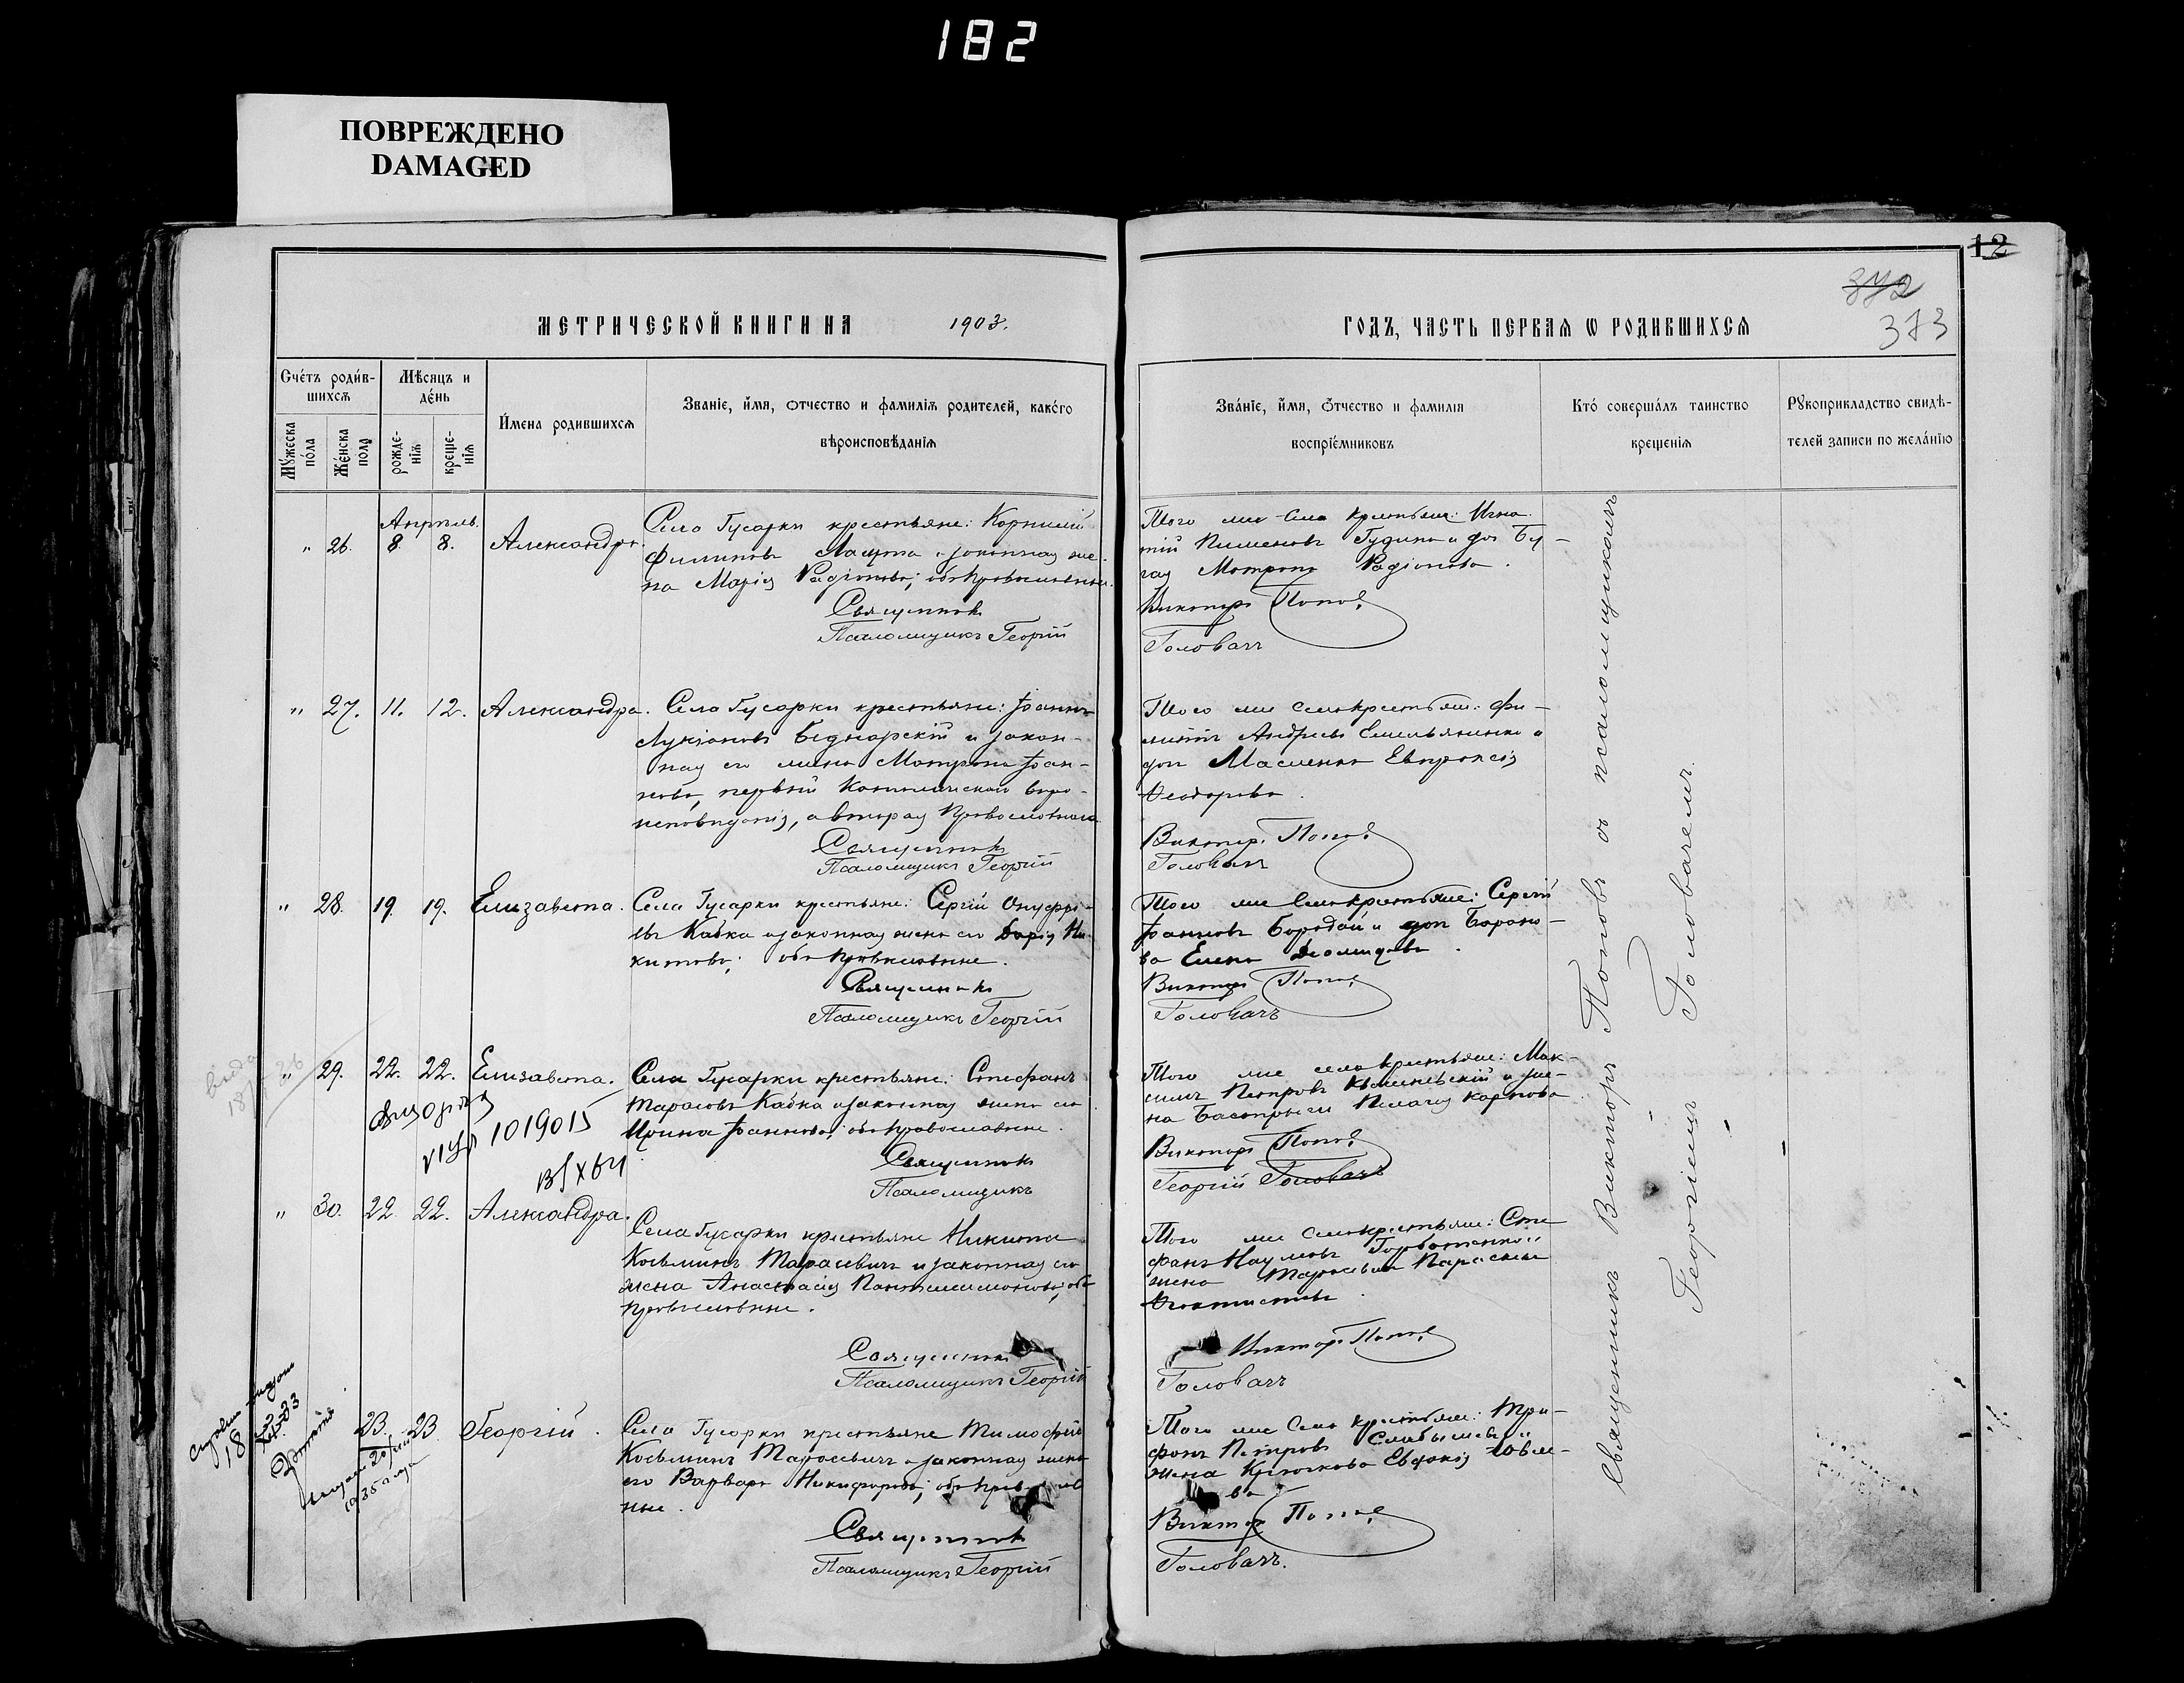 182
ПОВРЕЖДЕНО
DAMAGED
12
372
373
МЕТРИЧЕСКОЙ КНИГИ НА 1903.
ГОДЪ, ЧАСТЬ ПЕРВАЯ Ѡ РОДИВШИХСЯ
Счétъ роди́в-
шихсѧ
Мѣсяцъ и
дéнь
Мꙋ́жеска
пóла
Жéнска
полꙋ
рожде-
нїѧ
креще-
нїѧ
И́мена родившихсѧ
Званїе, и́мя, ѻтчество и фамилїѧ родителей, какóго
вѣроисповѣ́данїѧ
Звáнїе, и́мя, ѻ́тчество и фамилїя
воспрїéмниковъ
Ктó совершáлъ таинство
крещенїѧ
Рꙋкоприкладство свидѣ-
телей записи по желáнїю
Апрѣль.
" 26. 8. 8. Александра.
Села Гусарки крестьяне: Корнилій
Филиповъ Лацота и законная же-
на Марія Радіонова; оба православные.
Священникъ
Псаломщикъ Георгій
Того же села крестьяне: Игна-
тій Пименовъ Гудина и
Мотрона Радіонова.
Викторъ Поповъ
Головачъ
" 27. 11. 12. Александра.
Села Гусарки крестьяне: Іоаннъ
Лукіановъ Беднарскій и закон-
ная его жена Матрона Іоан-
нова, первый Католическаго веро-
исповеданія, а вторая Православнаго
Священникъ
Псаломщикъ Георгій
Того же села крестьяне: Фи-
липпъ Андреевъ Емельяненко и
Масленко Евпраксія
Ѳеодорова.
Викторъ Поповъ
Головачъ
" 28. 19. 19. Елизавета.
Села Гусарки крестьяне: Сергій Онуфрі-
евъ Кабка и законная жена его Дарія Ни-
китова; оба православные.
Священникъ
Псаломщикъ Георгій
Того же села крестьяне: Сергій
Іоанновъ Бородай и Барано-
ва Елена
Викторъ Поповъ
Головачъ
" 29. 22. 22. Елизавета.
1019015
Села Гусарки крестьяне: Стефанъ
Тарасовъ Кабка и законная жена его
Ирина Іоаннова; оба православные.
Священникъ
Псаломщикъ
Того же села крестьяне: Мак-
симъ Петровъ и же-
на Пелагія Карпова
Викторъ Поповъ
Георгій Головачъ
" 30. 22. 22. Александра.
Села Гусарки крестьяне Никита
Козьминъ Тарасевичъ и законная его
жена Анастасія Пантелеимонова; оба
православные.
Священникъ
Псаломщикъ Георгій
Того же села крестьяне: Сте-
фанъ Наумовъ Горбатенко и
жена Параскева
Викторъ Поповъ
Головачъ
23. 23. Георгій.
1935 года
Села Гусарки крестьяне Тимофей
Козьминъ Тарасевичъ и законная жена
его Варвара Никифорова; оба
Священникъ
Псаломщикъ Георгій
Того же села крестьяне: Три-
фонъ Петровъ
жена Крючкова Евдокія
Викторъ Поповъ
Головачъ.
Священникъ Викторъ Поповъ съ псаломщикомъ
Георгіемъ Головачемъ.